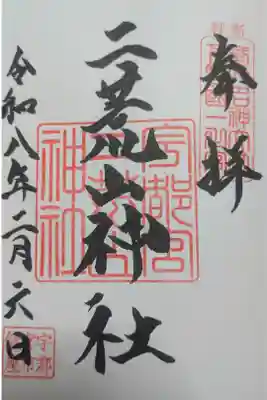 奉拝
二荒山神社
令和八年二月六日
宇都宮
二荒山
神社